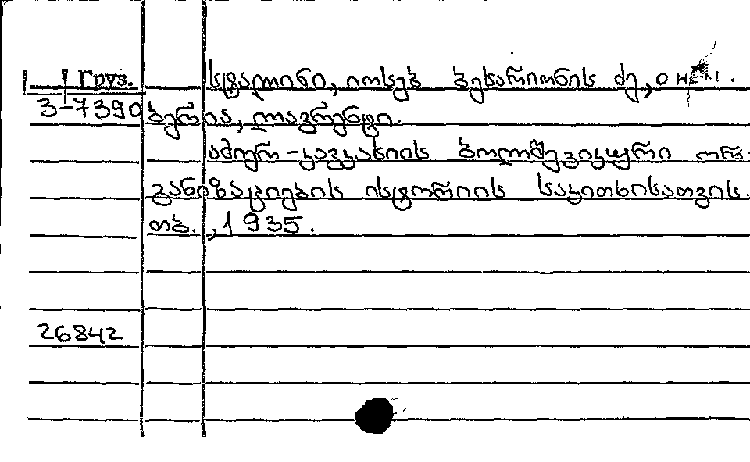 Груз. სტალინი, იოსებ ბესარიონის ძე,
3-7390 ბერია, ლავრენტი.
ამიერ-კავკასიის ბოლშევიკური ორ-
განიზაციების ისტორიის საკითხისათვის.
თბ., 1935.
26842